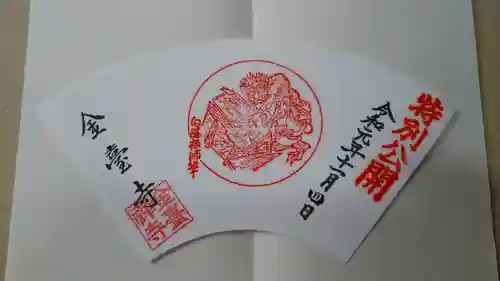 特別公開
令和元年十一月四日
金臺寺